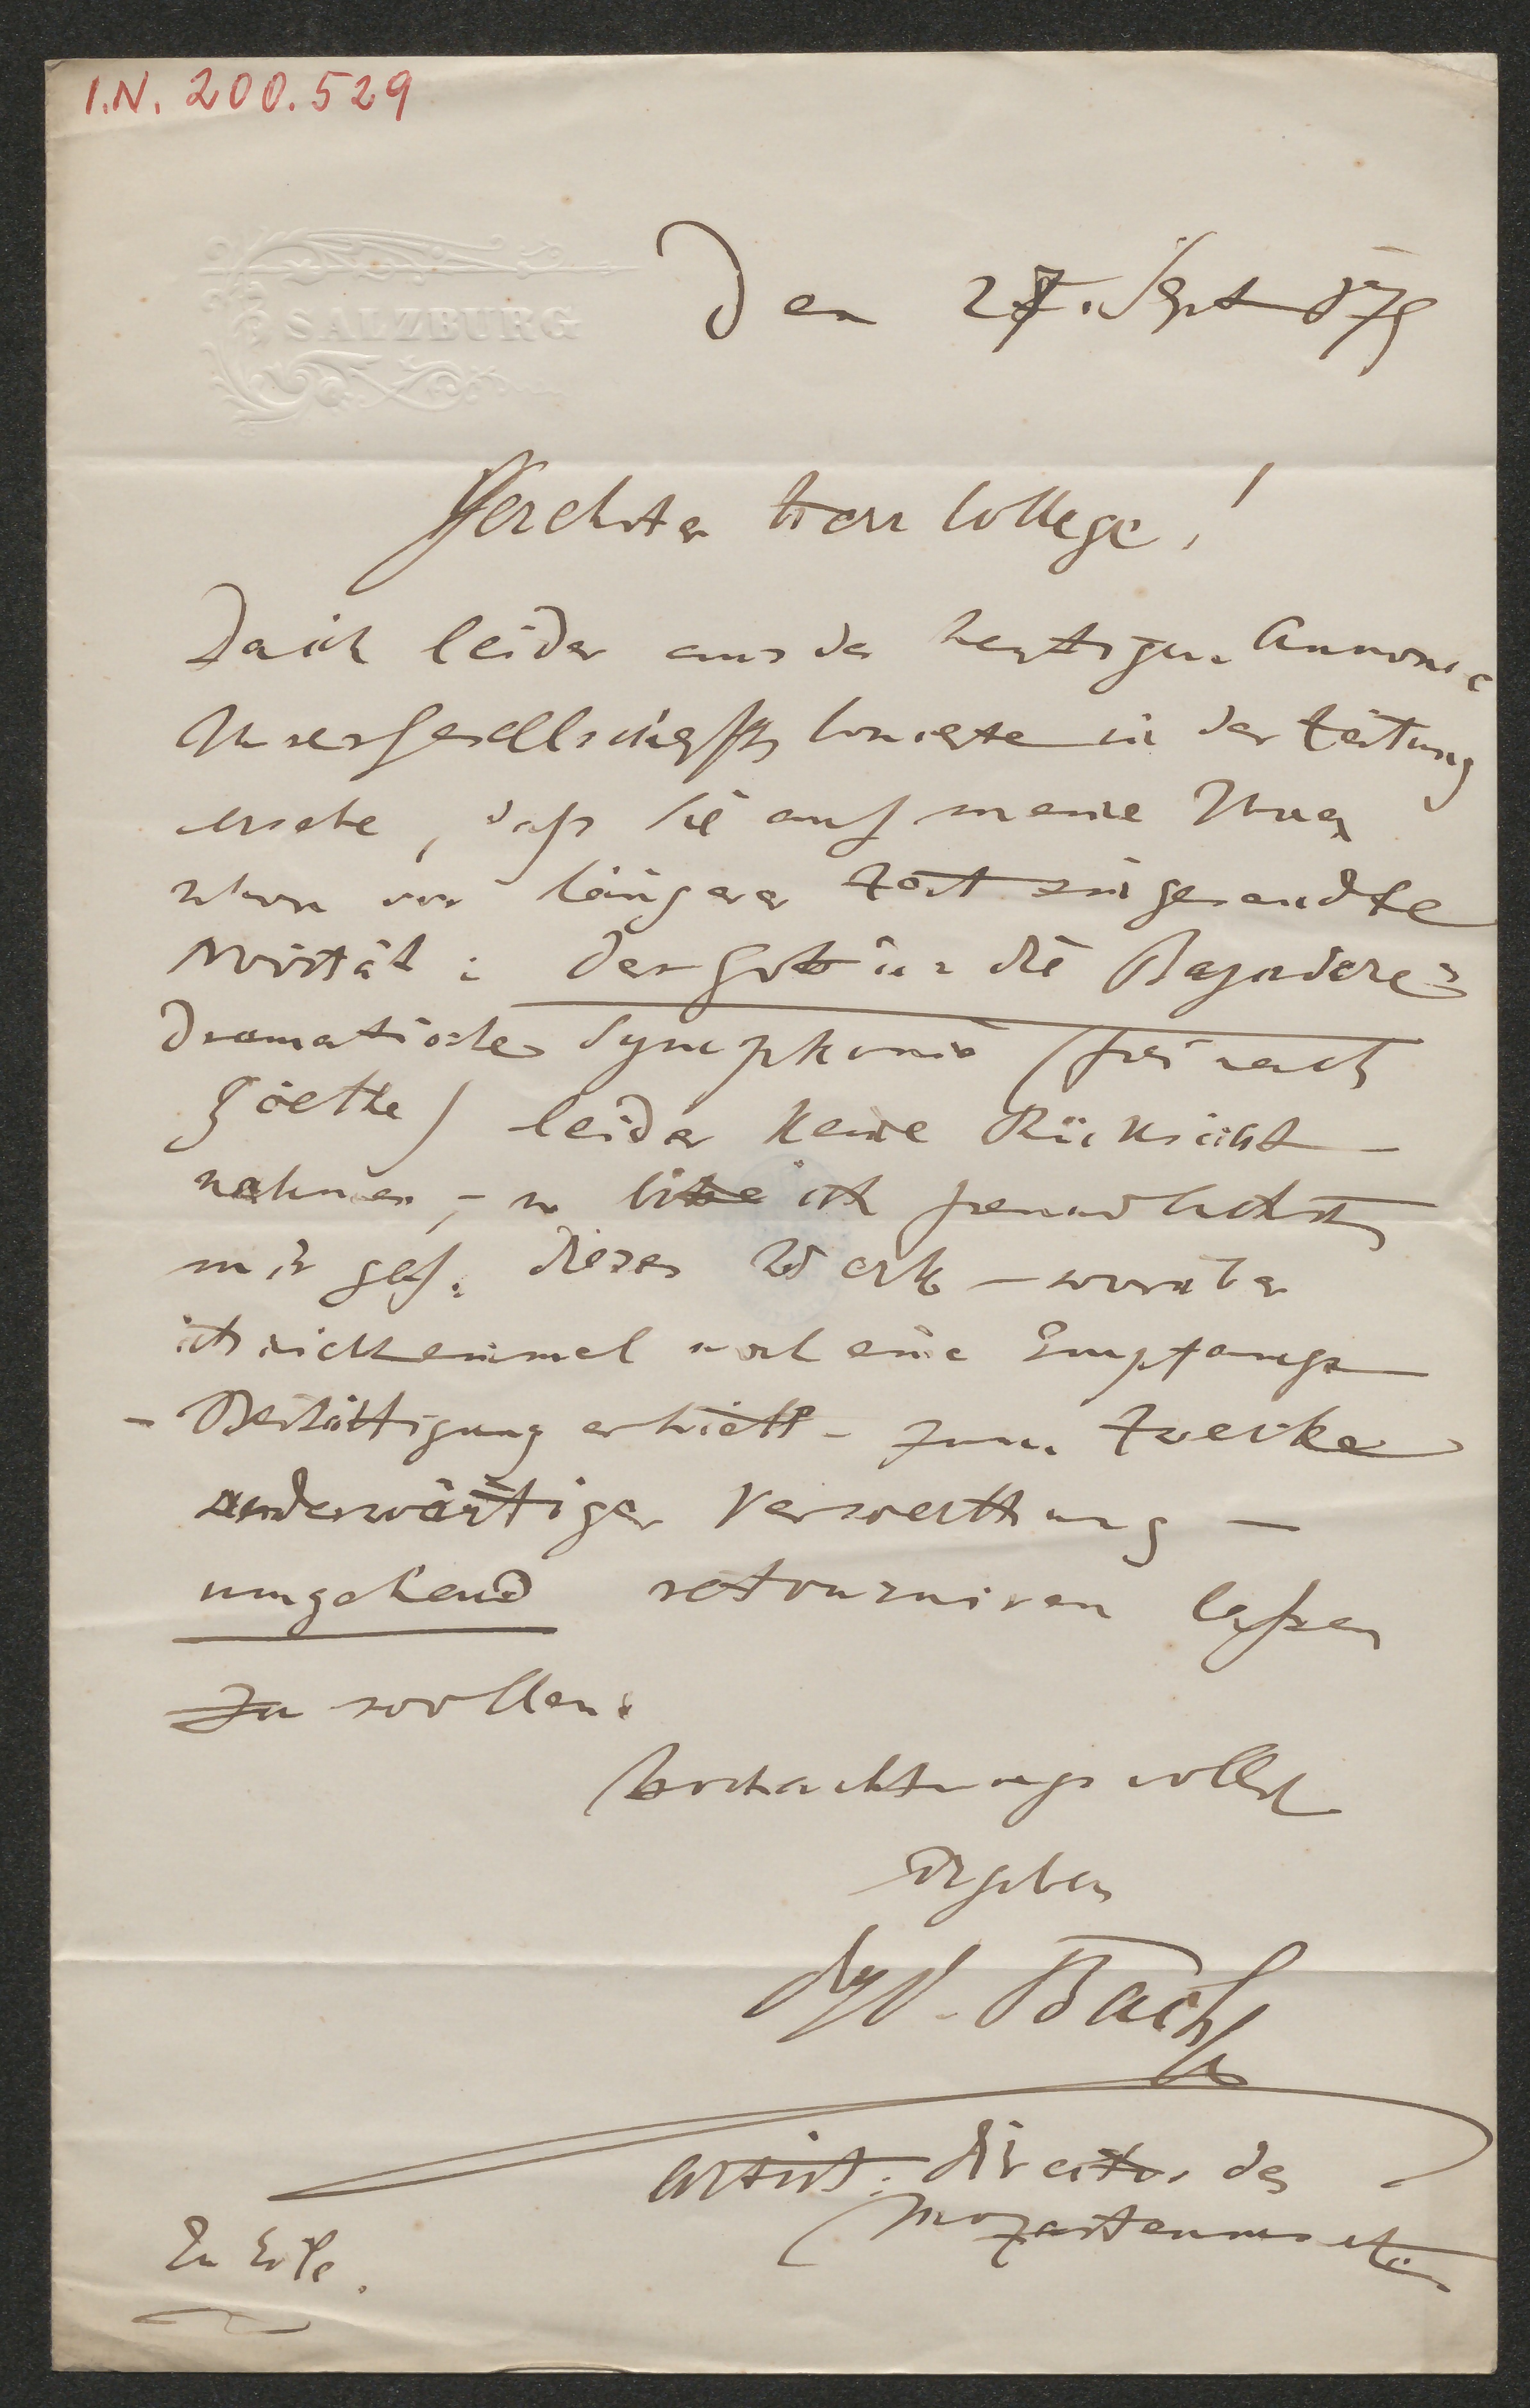 I.N. 200.529
SALZBURG
Den 27. Sept 879
Verehrter Herr College!
Da ich leider aus der heutigen Annonce
Ihrer Gesellschafts Concerte in der Zeitung
ersehe, daß Sie auf meine Ihnen
schon vor längerer Zeit eingesandte
Novität: Der Gott u. die Bajadere
dramatische Symphonie (frei nach
Göethe) leider keine Rücksicht
nahmen, – so bitte ich freundlichst
mir gef. dieses Werk – worüber
ich nicht einmal noch eine Empfangs
- Bestättigung erhielt – zum Zwecke
anderwärtiger Verwerthung –
umgehend retourniren laßen
zu wollen.
Hochachtungsvollst
Ergeben
Bach
artist. Director des
Mozarteums etc.
In Eile.